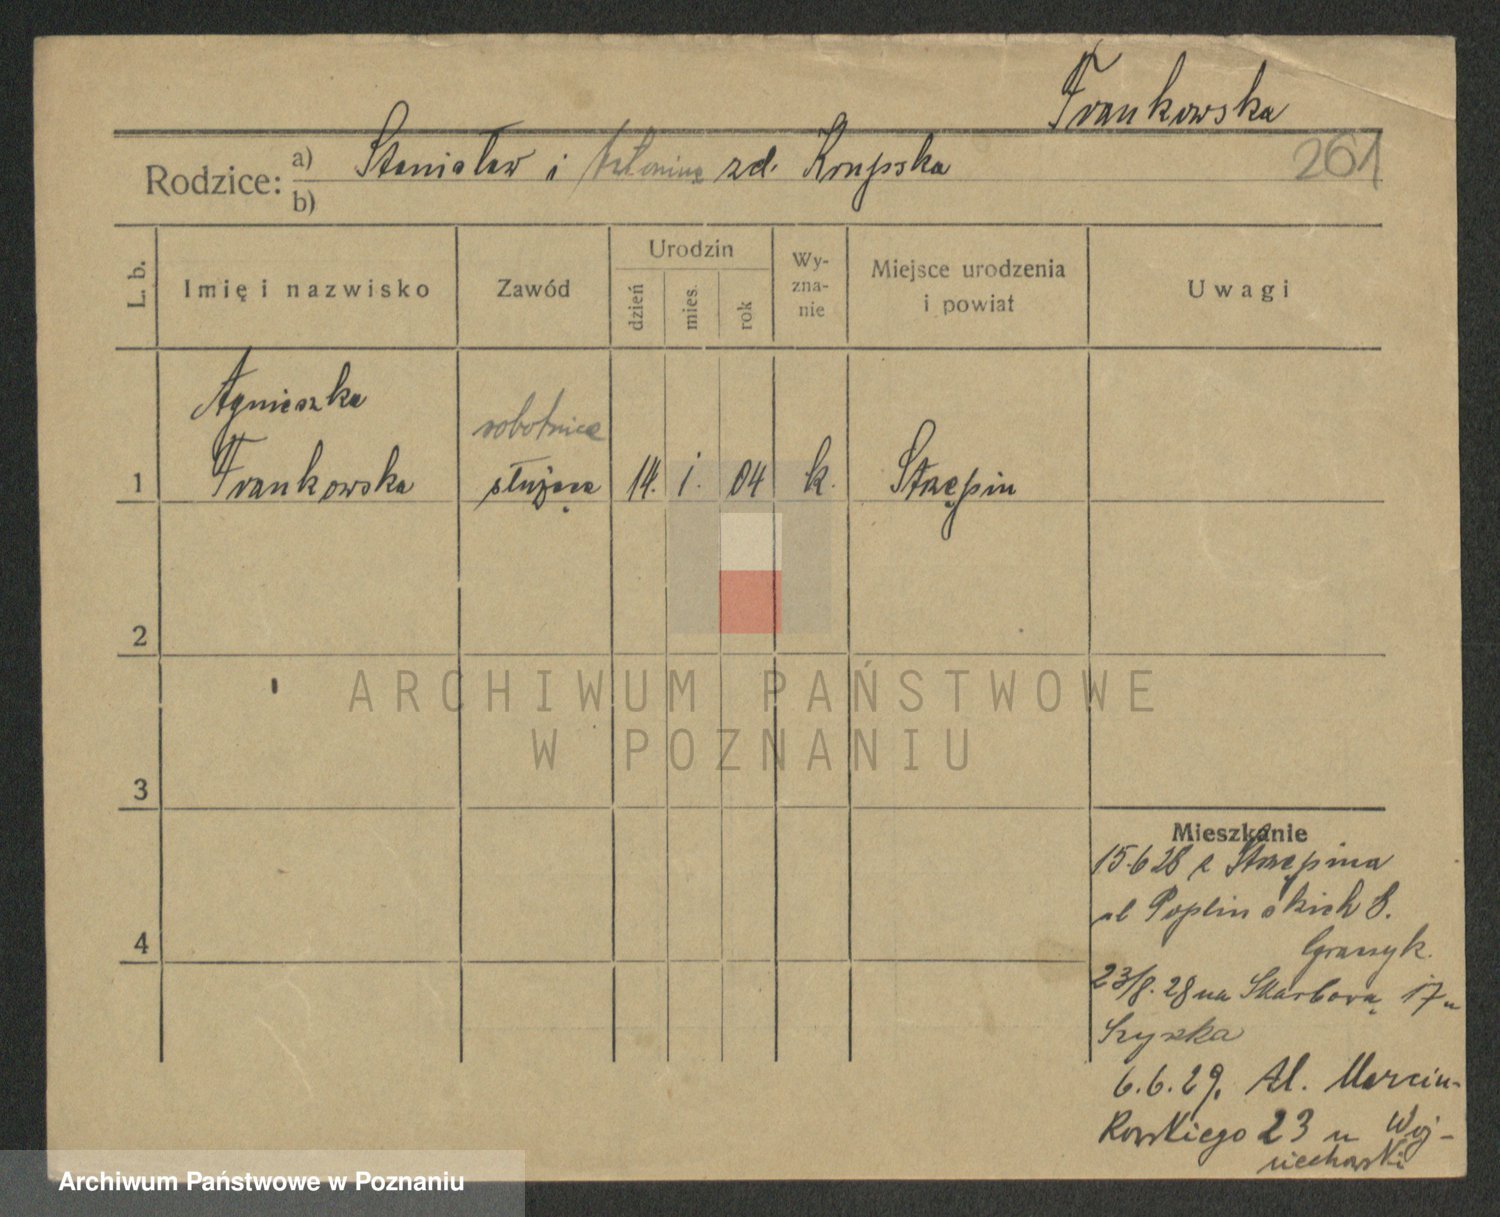 Frankowska
261
Rodzice: a) Stanisław i Antonina zd. Krupska
b)
L. b.
Imię i nazwisko
Zawód
Urodzin
dzień
mies.
rok
Wy-
zna-
nie
Miejsce urodzenia
i powiat
Uwagi
Agnieszka
robotnica
1 Frankowska służąca 14. i. 04 k. Strzępin
2
3
4
Mieszkanie
15.6 28 z Strzępina
ul Poplinskich 8.
23/8. 28 na Skarbową 17 u
Szyszka
6.6.29. Al. Marcin-
kowskiego 23 u Woj-
ciechowski
ARCHIWUM PAŃSTWOWE
W POZNANIU
Archiwum Państwowe w Poznaniu